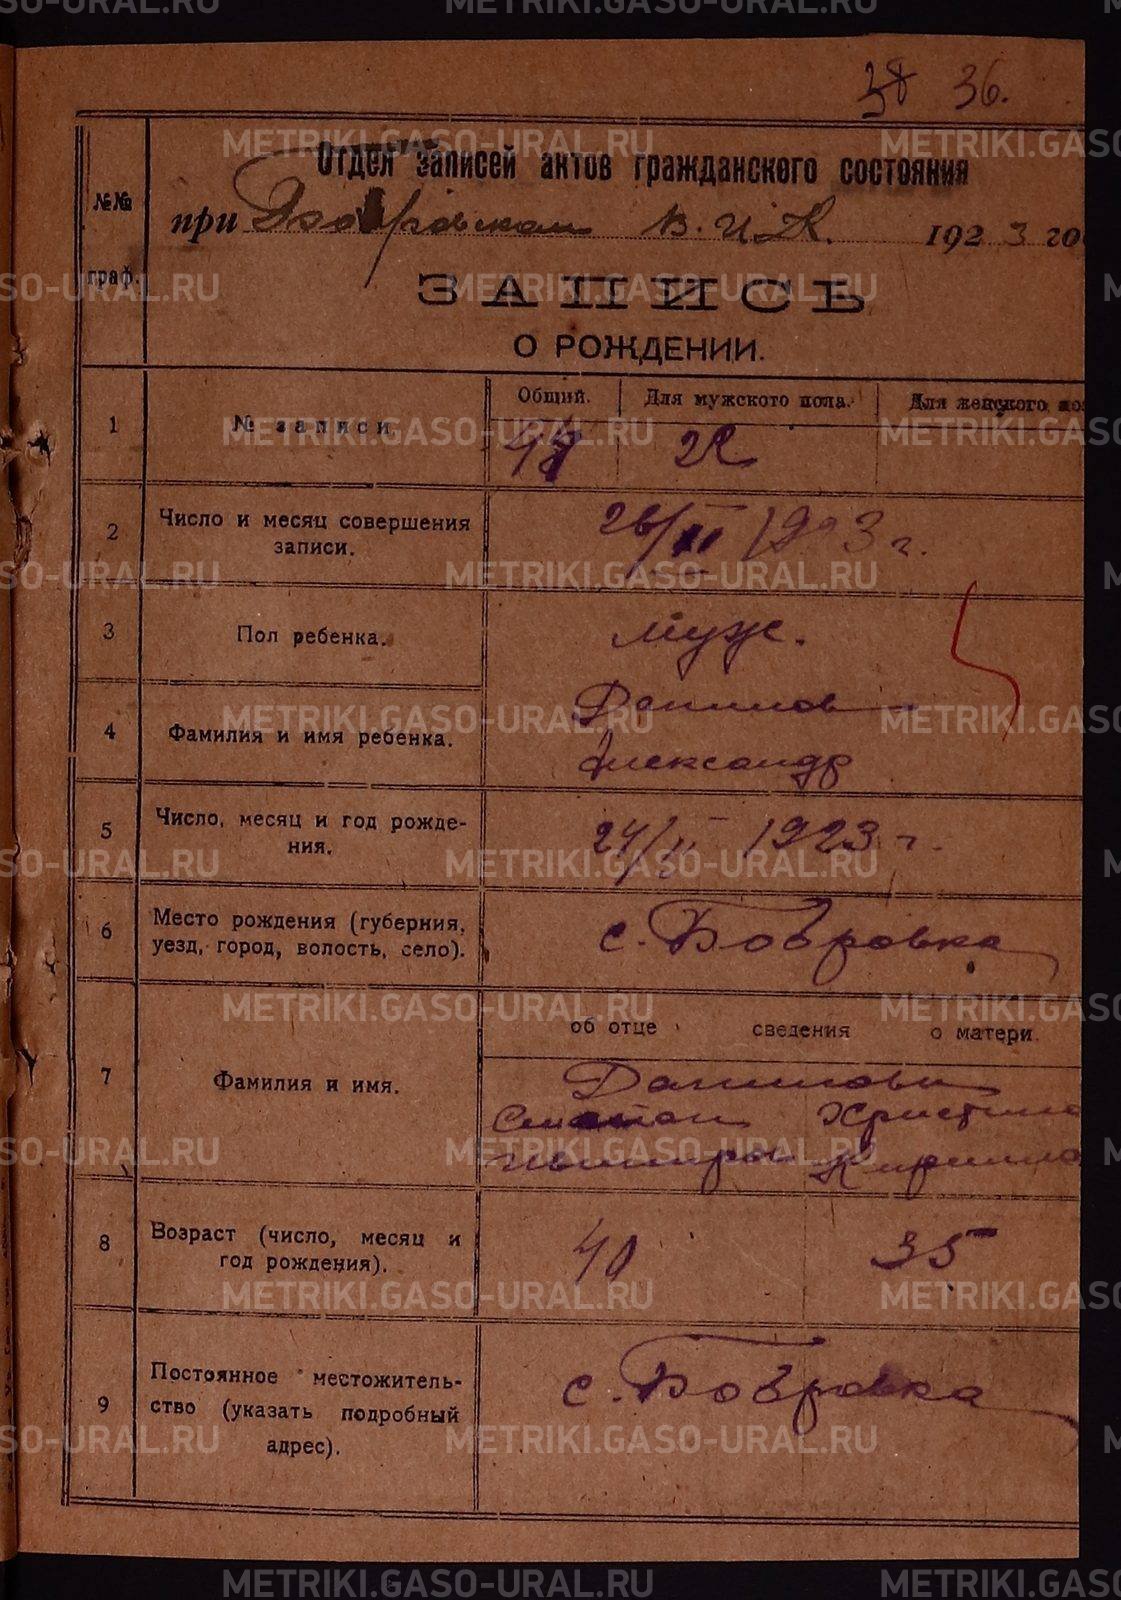 36.
Отдел записей актов гражданского состояния
№№ граф.
при Бобровском В. И. К. 1923 го
ЗАПИСЬ
О РОЖДЕНИИ.
Общий. Для мужского пола. Для женского по
1 № записи 22
2 Число и месяц совершения записи. 26/II 1923 г.
3 Пол ребенка. муж.
4 Фамилия и имя ребенка. Данилов
Александр
5 Число, месяц и год рожде-
ния. 24/II 1923 г.
6 Место рождения (губерния,
уезд, город, волость, село). с. Бобровка
об отце сведения о матери.
7 Фамилия и имя. Даниловы
Христина
8 Возраст (число, месяц и
год рождения). 40 35
9 Постоянное местожитель-
ство (указать подробный
адрес). с. Бобровка
METRIKI.GASO-URAL.RU